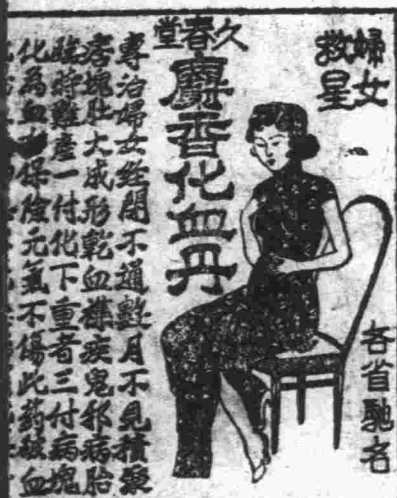 婦女
救星
久春堂
麝香化血丹
各省馳名
專治婦女經閉不通數月不見積聚
痞塊肚大成形乾血癆疾鬼邪病胎
臨時難產一付化下重者三付病塊
化為血水保險元氣不傷此药破血